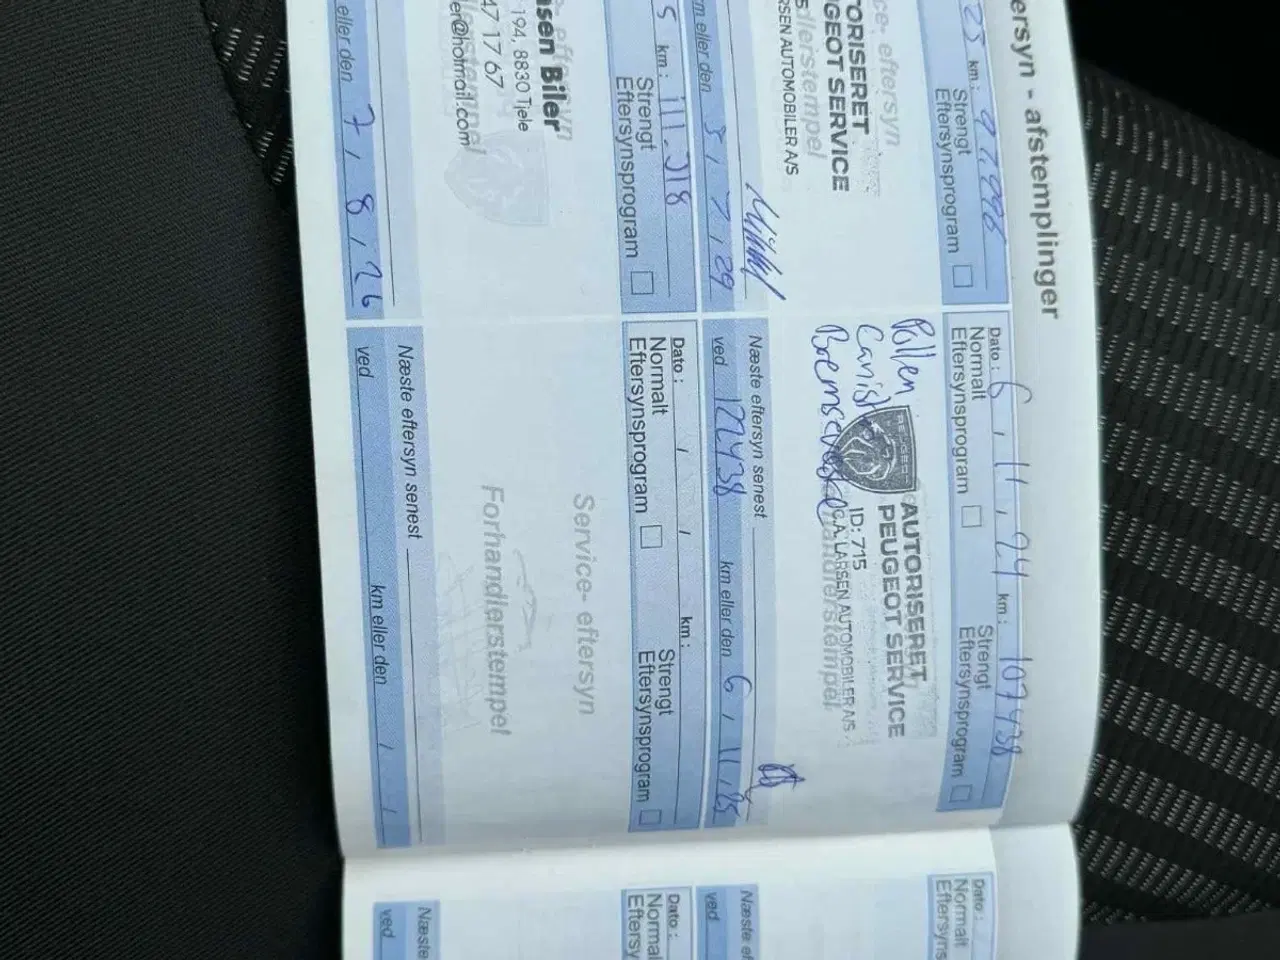 ersyn - afstemplinger
23 km: 97.996
Strengt
Eftersynsprogram
ce- eftersyn
TORISERET
GEOT SERVICE
dlerstempel
RSEN AUTOMOBILER A/S
m eller den 5 / 7 / 29
km: 111.318
Strengt
Eftersynsprogram
e- eftersyn
sen Biler
194, 8830 Tjele
47 17 67
er@hotmail.com
eller den 7 / 8 / 26
Dato: 6 / 11 / 24 km: 107438
Normalt
Eftersynsprogram
Strengt
Eftersynsprogram
Pollen
PEUGEOT
AUTORISERET
PEUGEOT SERVICE
ID: 715
C.A. LARSEN AUTOMOBILER A/S
Næste eftersyn senest
ved 122438 km eller den 6 / 11 / 25
Dato: / / km:
Normalt
Eftersynsprogram
Strengt
Eftersynsprogram
Service- eftersyn
Forhandlerstempel
Næste eftersyn senest
ved km eller den / /
Dato:
Normalt
Eftersyns
Næste ef
ved
Dato:
Normal
Eftersy
Næste
ved